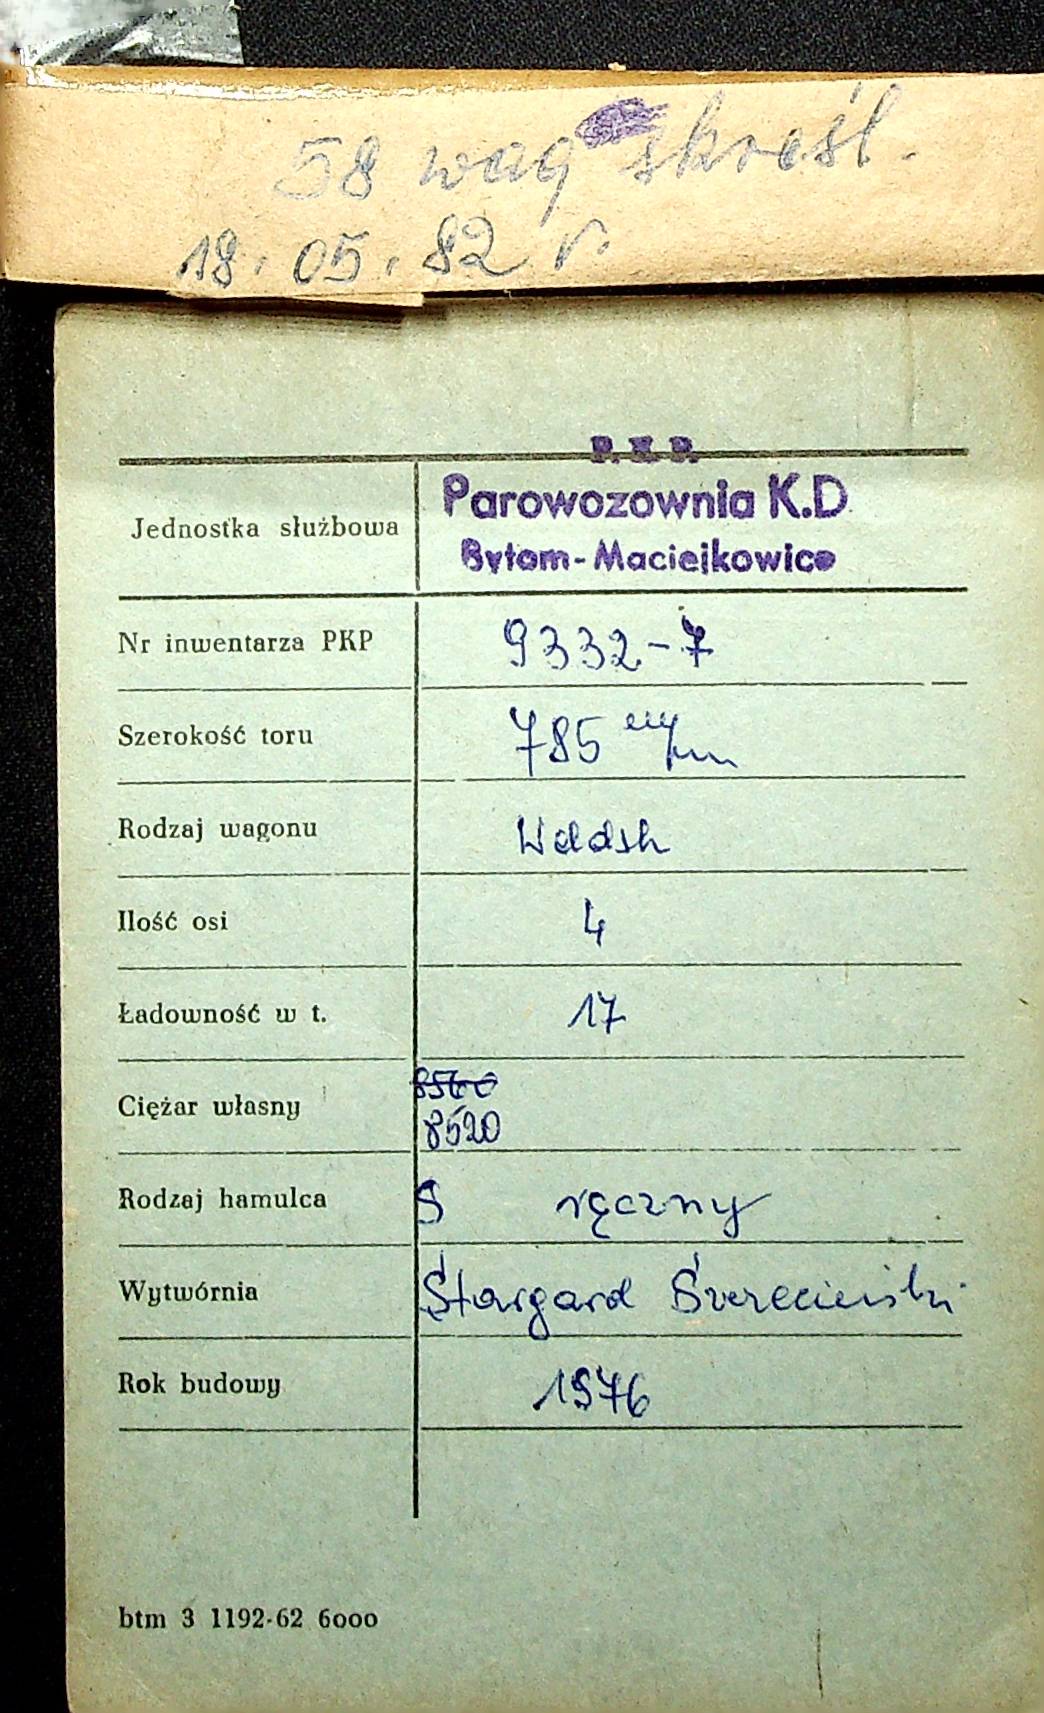 58 wag skreśl.
18.05.82 r.
P.K.P.
Parowozownia K.D
Bytom-Maciejkowice
Jednostka służbowa
Nr inwentarza PKP 9332-7
Szerokość toru 785 m/m
Rodzaj wagonu Wddsh
Ilość osi 4
Ładowność w t. 17
8560
Ciężar własny 8520
Rodzaj hamulca ręczny
Wytwórnia Stargard Szczeciński
Rok budowy 1976
btm 3 1192-62 6000